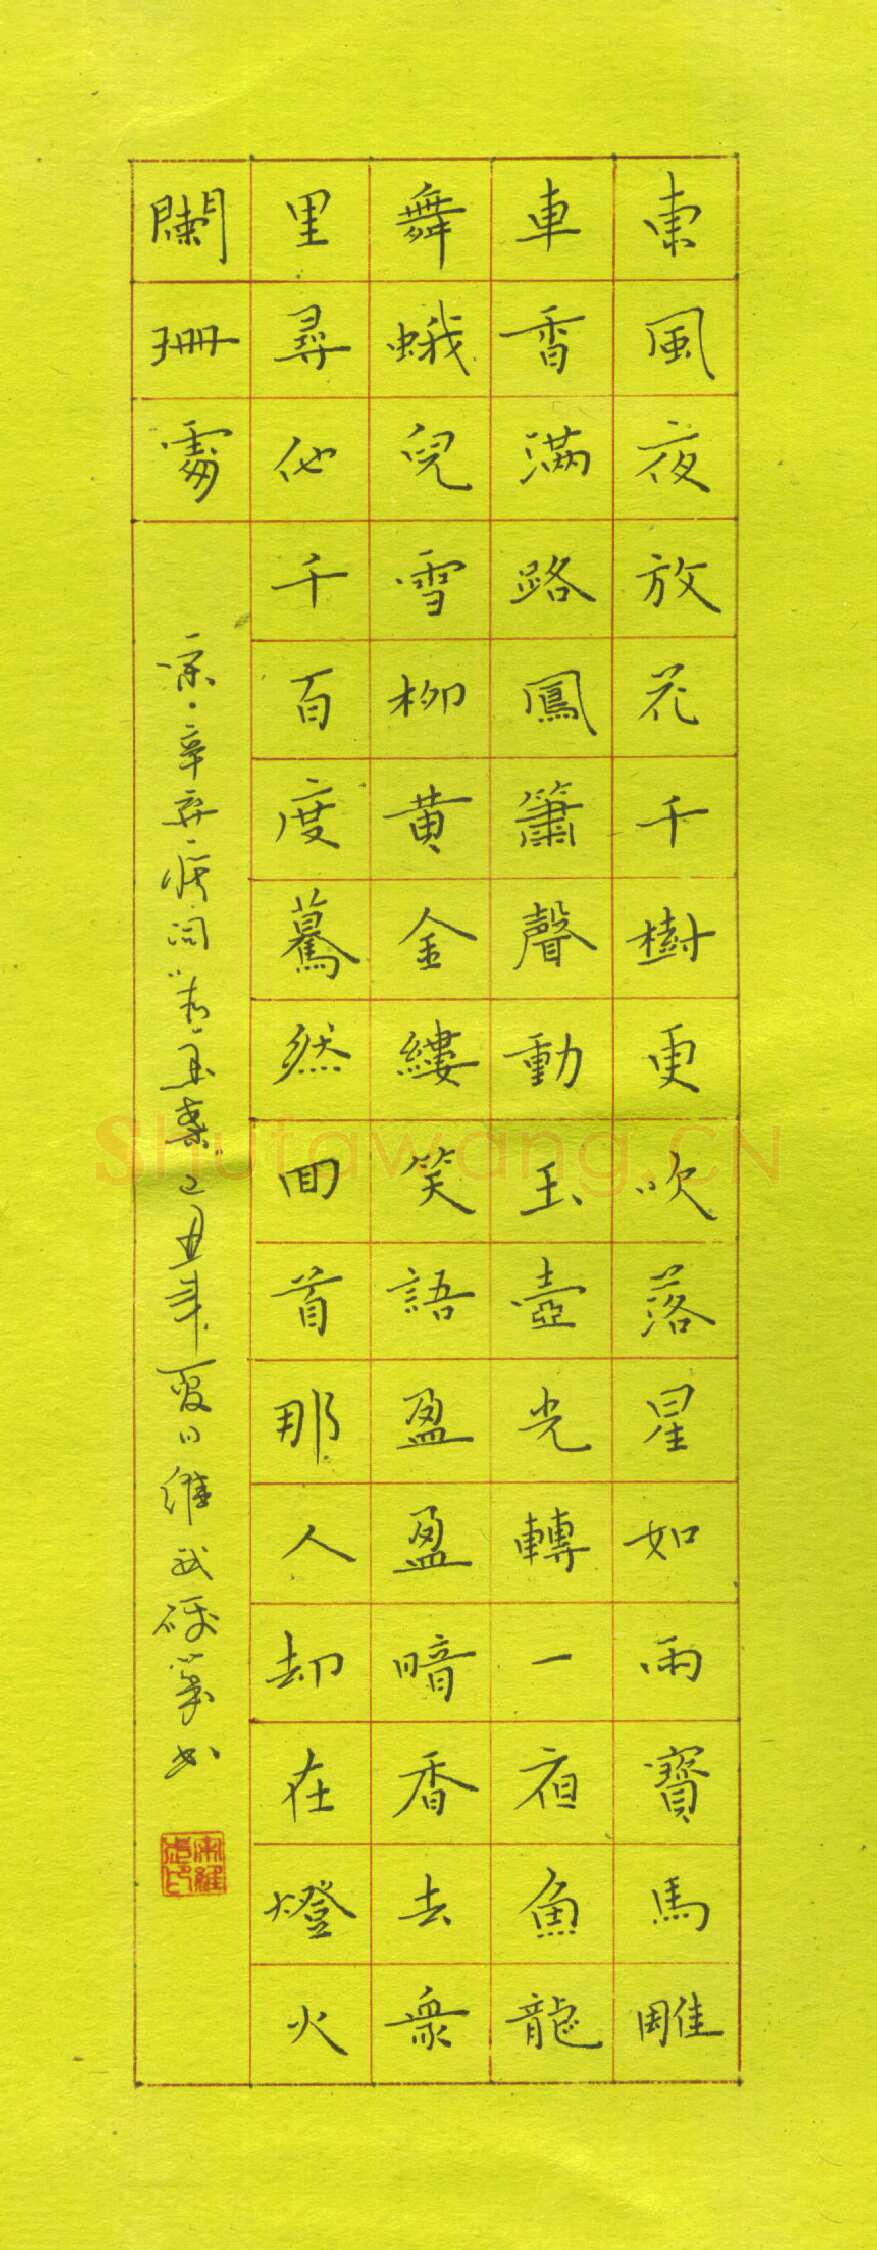 東風夜放花千樹更吹落星如雨寶馬雕
車香滿路鳳簫聲動玉壺光轉一夜魚龍
舞蛾兒雪柳黄金縷笑語盈盈暗香去衆
里尋他千百度驀然囬首那人却在燈火
闌珊處
宋·辛弃疾词"青玉案"己丑年夏日維武硬筆书
Shufawang.CN